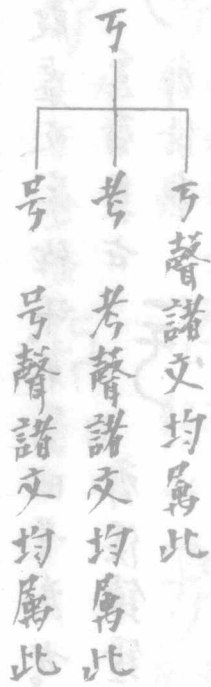 丂
丂聲諸文均屬此
考　考聲諸文均屬此
号　号聲諸文均屬此